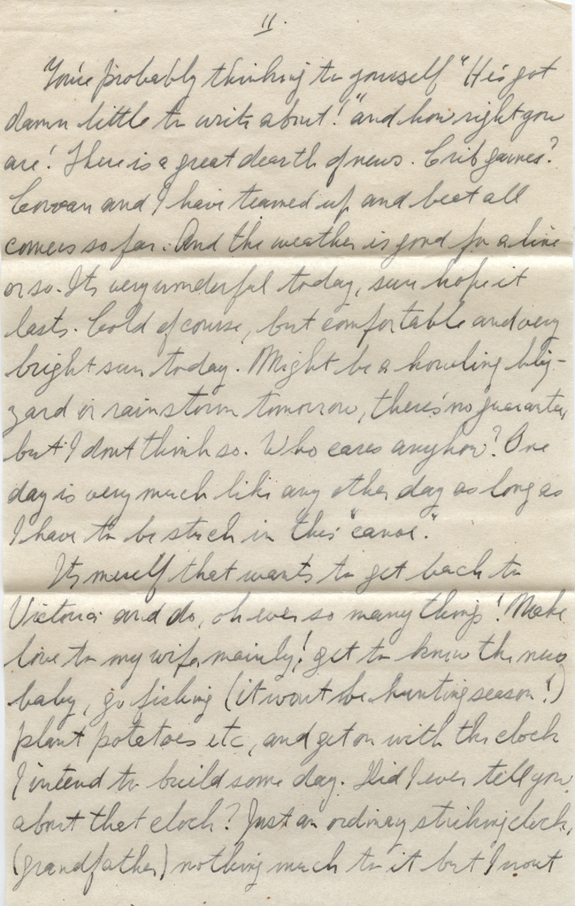 II.
You're probably thinking to yourself "He's got
damn little to write about!" and how right you
are! There is a great dearth of news. Crib games?
Cowan and I have teamed up and beat all
comers so far. And the weather is good for a line
or so. Its very wonderful today, sure hope it
lasts. Cold of course, but comfortable and very
bright sun today. Might be a howling bliz-
zard or rainstorm tomorrow, there's no guarantee,
but I dont think so. Who cares anyhow? One
day is very much like any other day as long as
I have to be stuck in this "canoe."
Its meself that wants to get back to
Victoria and do, oh ever so many things! Make
love to my wife, mainly! get to know the new
baby, go fishing (it wont be hunting season!)
plant potatoes etc, and get on with the clock
I intend to build some day. Did I ever tell you
about that clock? Just an ordinary striking clock,
(grandfather) nothing much to it but I want